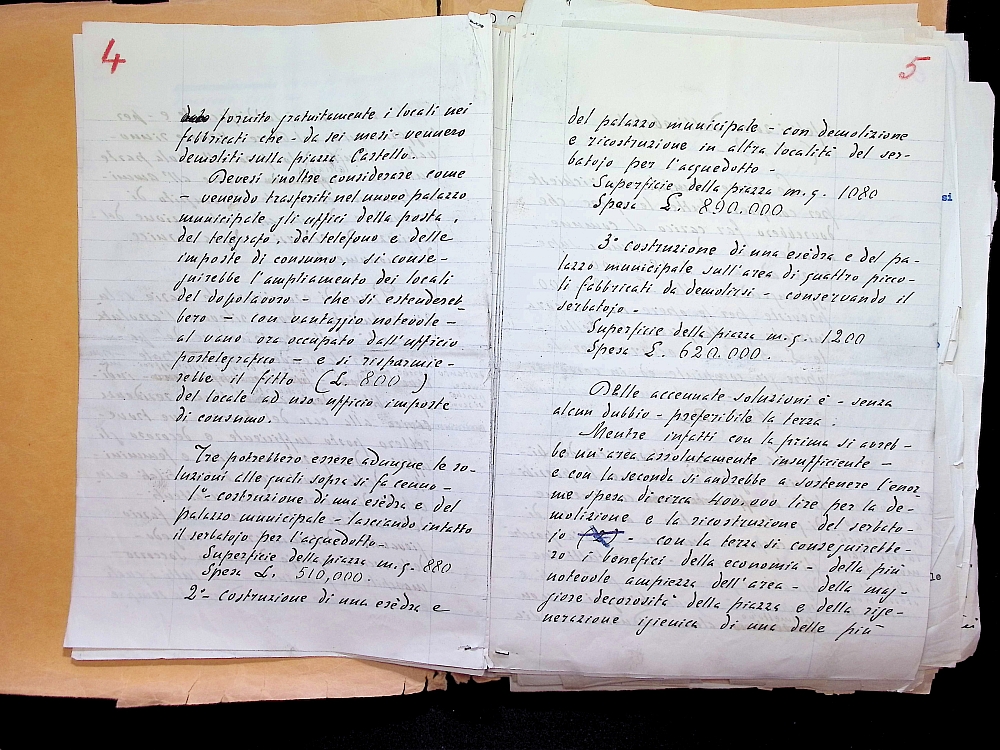 4
fornito gratuitamente i locali nei
fabbricati che - da sei mesi - vennero
demoliti sulla piazza Castello.
Devesi inoltre considerare come
- venendo trasferiti nel nuovo palazzo
municipale gli uffici della posta,
del telegrafo, del telefono e delle
imposte di consumo, si conse-
guirebbe l'ampliamento dei locali
del dopolavoro - che si estendereb
bero - con vantaggio notevole -
al vano ora occupato dall'ufficio
postelegrafico - e si risparmie-
rebbe il fitto (£. 800 )
del locale ad uso ufficio imposte
di consumo.
Tre potrebbero essere adunque le so-
luzioni alle quali sopra si fa cenno -
1º - costruzione di una esèdra e del
palazzo municipale - lasciando intatto
il serbatojo per l'acquedotto -
Superficie della piazza m.q. 880
Spesa £. 510,000.
2º - Costruzione di una esèdra e
5
del palazzo municipale - con demolizione
e ricostruzione in altra località del ser-
batojo per l'acquedotto -
Superficie della piazza m.q. 1080
Spesa £. 890.000
3º costruzione di una esèdra e del pa-
lazzo municipale sull'area di quattro picco-
li fabbricati da demolirsi - conservando il
serbatojo -
Superficie della piazza m.q. 1200
Spesa £. 620.000.
Delle accennate soluzioni è - senza
alcun dubbio - preferibile la terza.
Mentre infatti con la prima si avreb-
be un'area assolutamente insufficiente -
e con la seconda si andrebbe a sostenere l'enor
me spesa di circa 400.000 lire per la de-
molizione e la ricostruzione del serbato-
jo - con la terza si conseguirebbe-
ro i benefici della economia - della più
notevole ampiezza dell'area - della mag-
giore decorosità della piazza e della rige-
nerazione igienica di una delle più
si
le